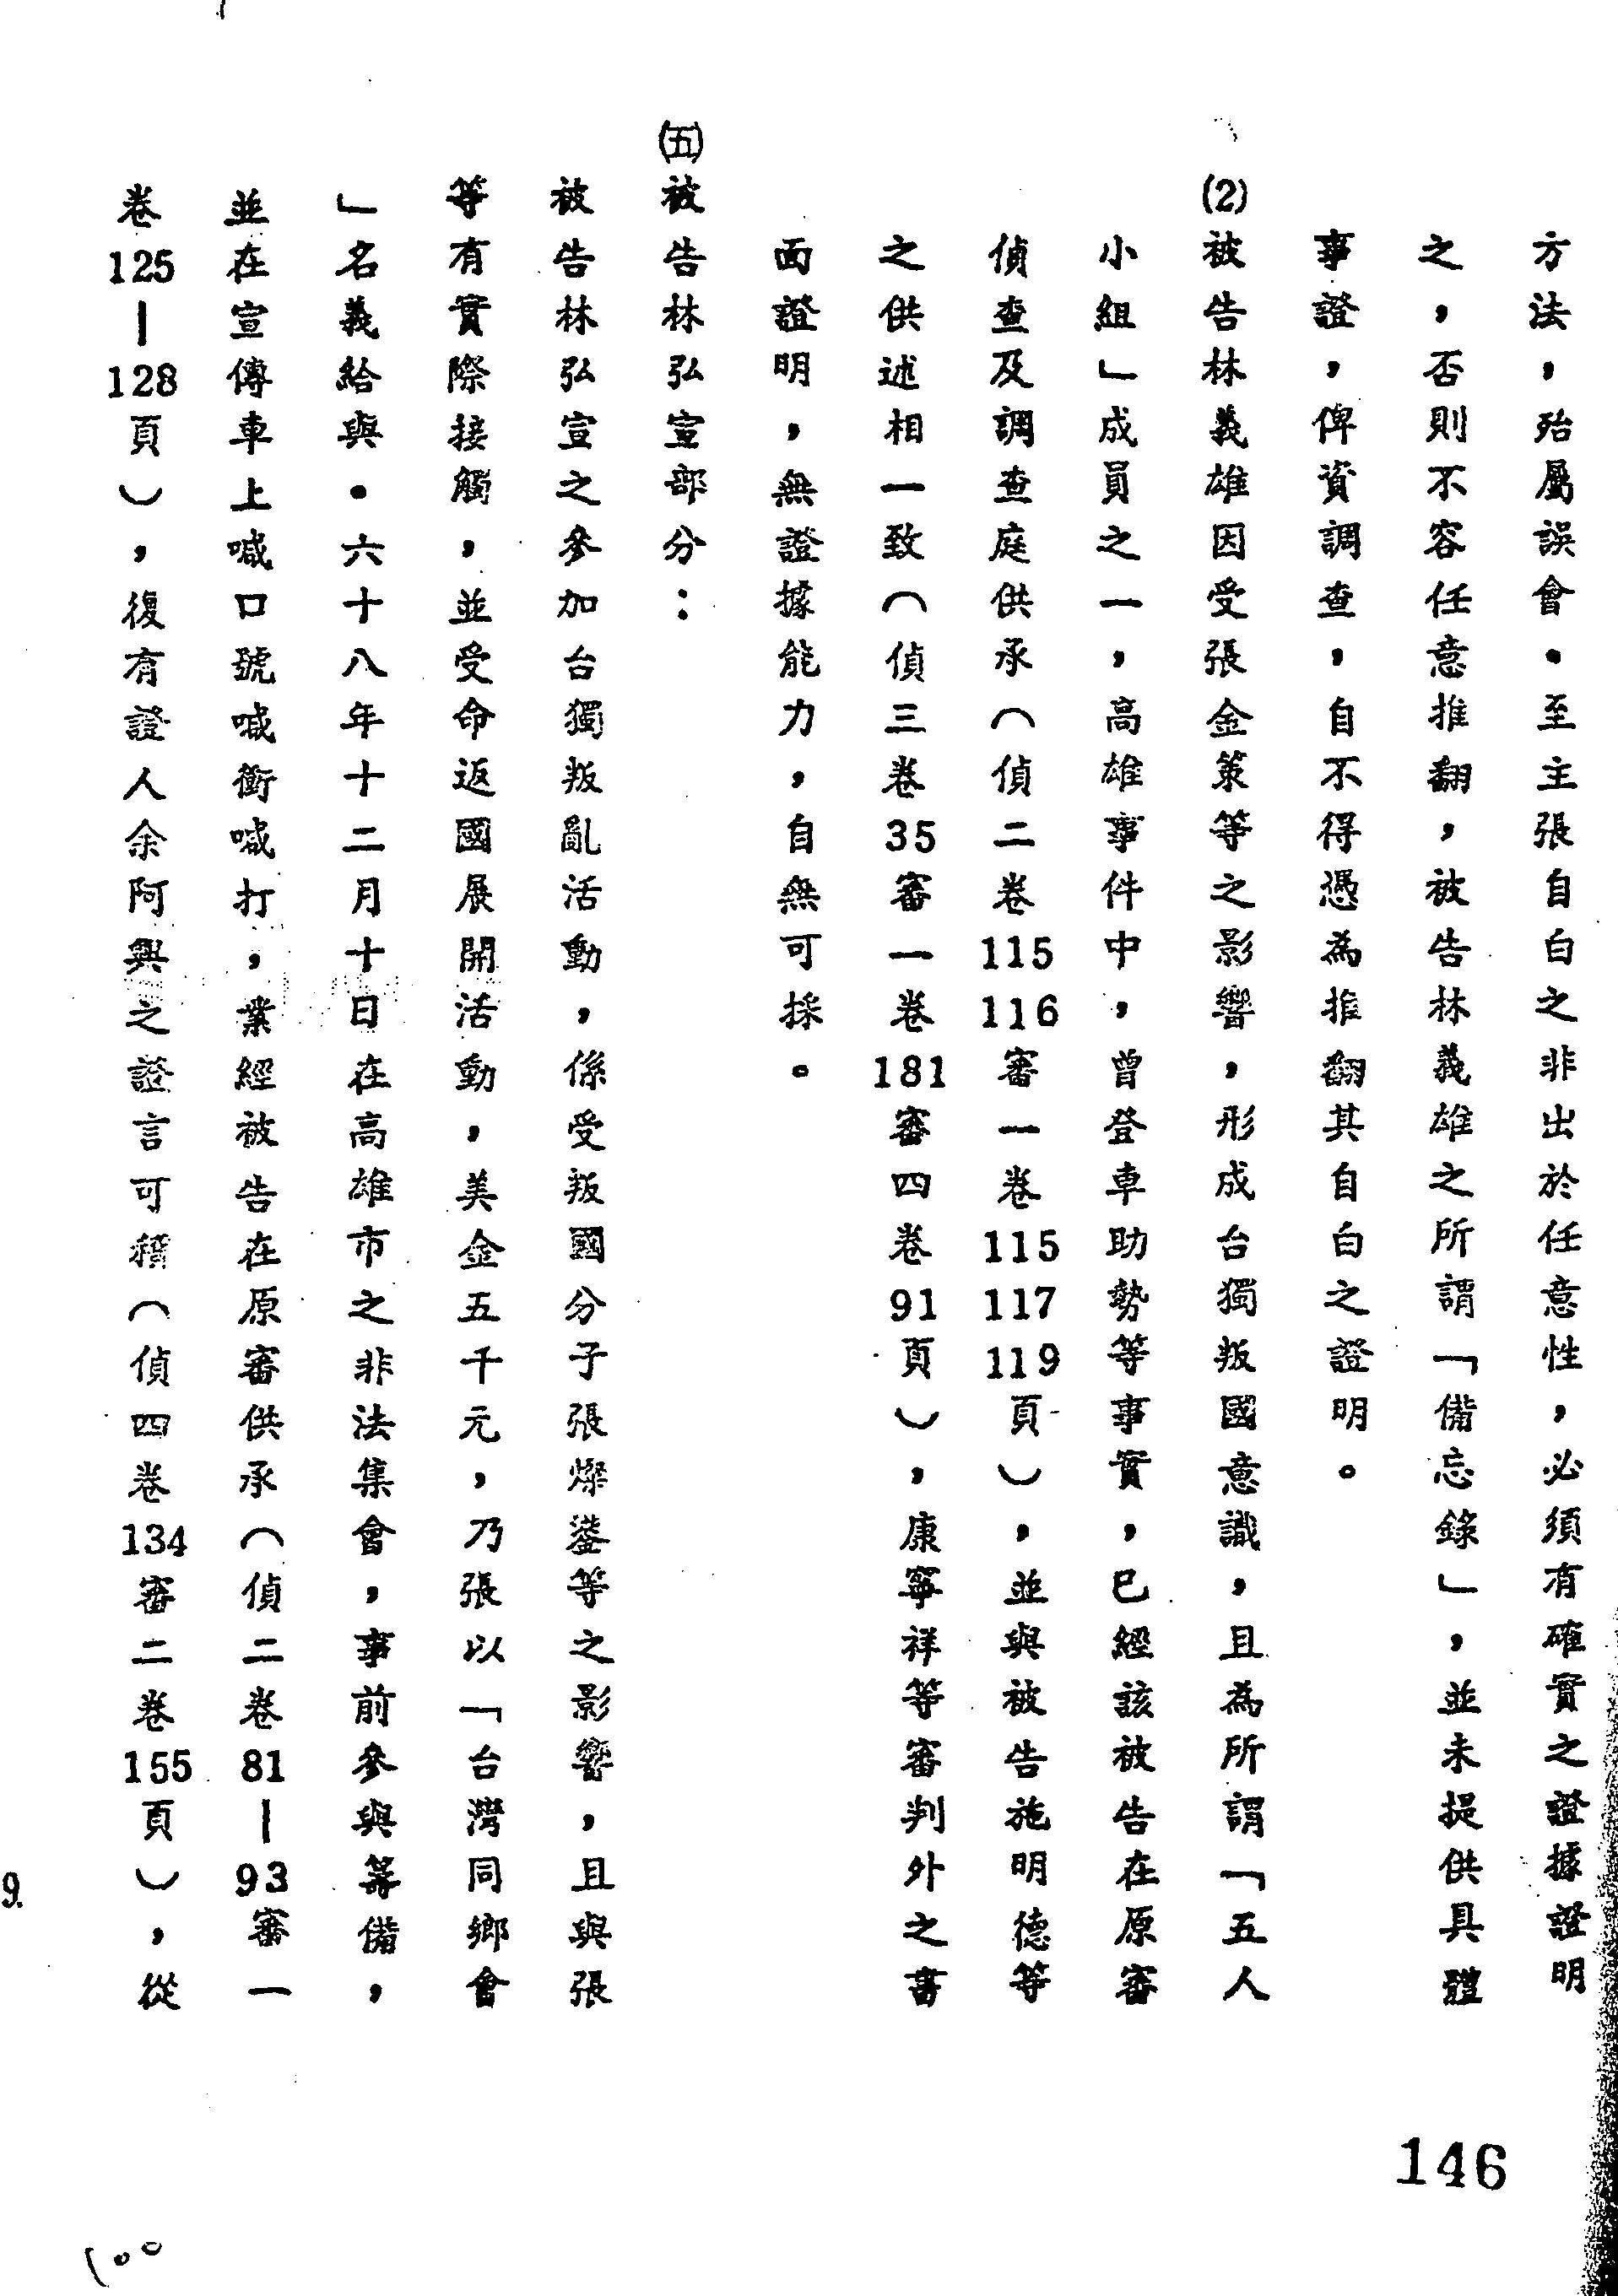 方法，殆屬誤會。至主張自白之非出於任意性，必須有確實之證據證明
之，否則不容任意推翻，被告林義雄之所謂「備忘錄」，並未提供具體
事證，俾資調查，自不得憑為推翻其自白之證明。
(2)被告林義雄因受張金策等之影響，形成台獨叛國意識，且為所謂「五人
小組」成員之一，高雄事件中，曾登車助勢等事實，已經該被告在原審
偵查及調查庭供承（偵二卷115 116審一卷115 117 119頁），並與被告施明德等
之供述相一致（偵三卷35審一卷181審四卷91頁），康寧祥等審判外之書
面證明，無證據能力，自無可採。
㈤被告林弘宣部分：
被告林弘宣之參加台獨叛亂活動，係受叛國分子張燦鍙等之影響，且與張
等有實際接觸，並受命返國展開活動，美金五千元，乃張以「台灣同鄉會
」名義給與。六十八年十二月十日在高雄市之非法集會，事前參與籌備，
並在宣傳車上喊口號喊衝喊打，業經被告在原審供承（偵二卷81—93審一
卷125—128頁），復有證人余阿興之證言可稽（偵四卷134審二卷155頁），從
146
9.
100